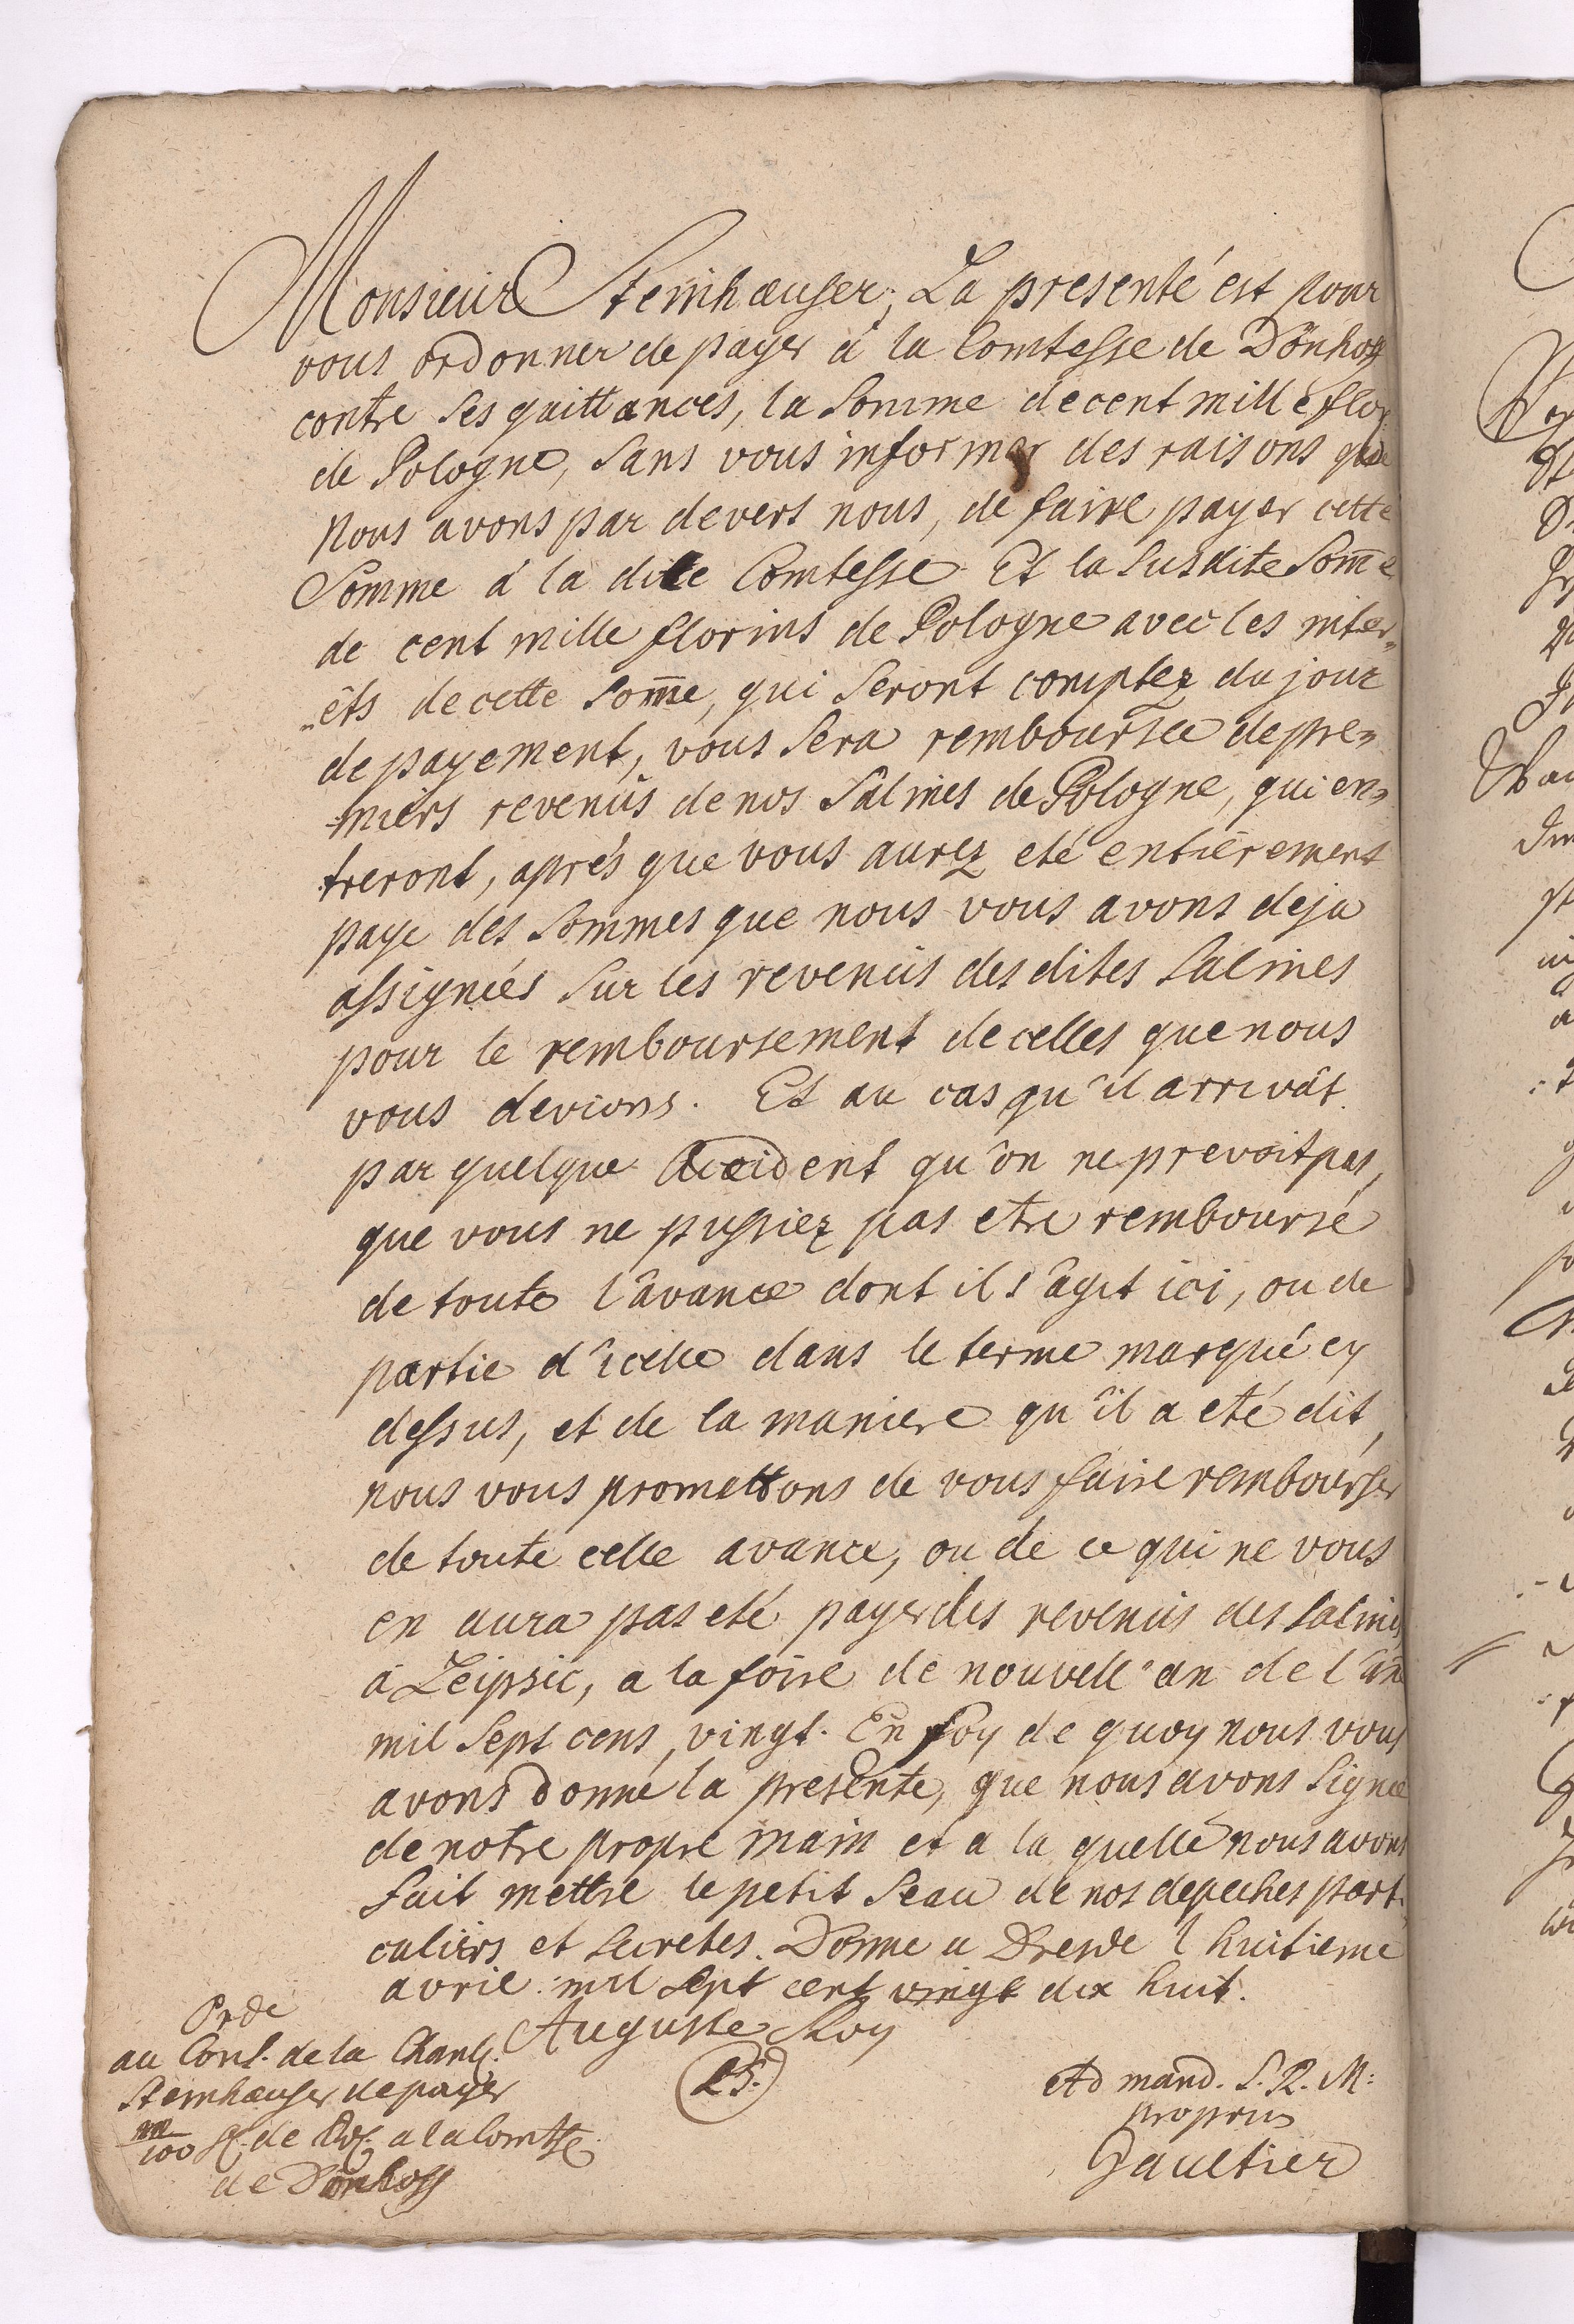 Monsieur Steinhæuser; La presenté est pour
vous ordonner de payer á la Comtesse de Dönhoff
contre ses quittances, la Somme de cent mille flor
de Pologne, sans vous informer des raisons que
Nous avons par devers nous, de faire payer cette
Somme á la dite Comtesse Et la susdite Som̄e
de cent mille florins de Pologne avec les inter„
„êts de cette Som̄e, qui seront comptez du jour
de payement, vous sera remboursée de pre„
miers revenus de nos Salines de Pologne, qui en„
treront, aprés que vous aurez eté entiérement
paye des Sommes que nous vous avons deja
assignées sur les revenus des dites Salines
pour le remboursement de celles que nous
vous devions. Et au cas qu'il arrivât
par quelque Accident qu'on ne prevoit pas,
que vous ne pussiez pas etre remboursé
de toute l'avance dont il s'agit ici, ou de
partie d'icelle dans le terme marqué cy
dessus, et de la maniere qu'il a eté dit,
nous vous promettons de vous faire rembourser
de toute celle avance, ou de ce qui ne vous
en aura pas eté payer des revenus des salines
á Leipsic, a la foire de nouvell'an de l'ann
mil sept cens, vingt. En foy de quoy nous vous
avons donné la presente, que nous avons signée
de notre propre main et a la quelle nous avons
fait mettre le petit Seau de nos depeches parti
culiers et secretes. Donne a Dresde l huitieme
avril mil sept cent vingt dix huit.
Auguste Roy
(LS.)
Ad mand. S. R. M:
proprium
Gaultier
Orde
au Cons. de la Chanc.
Steinhæuser de payer
m/100 fl. de Pol. a la Comtsse
de Dönhoff